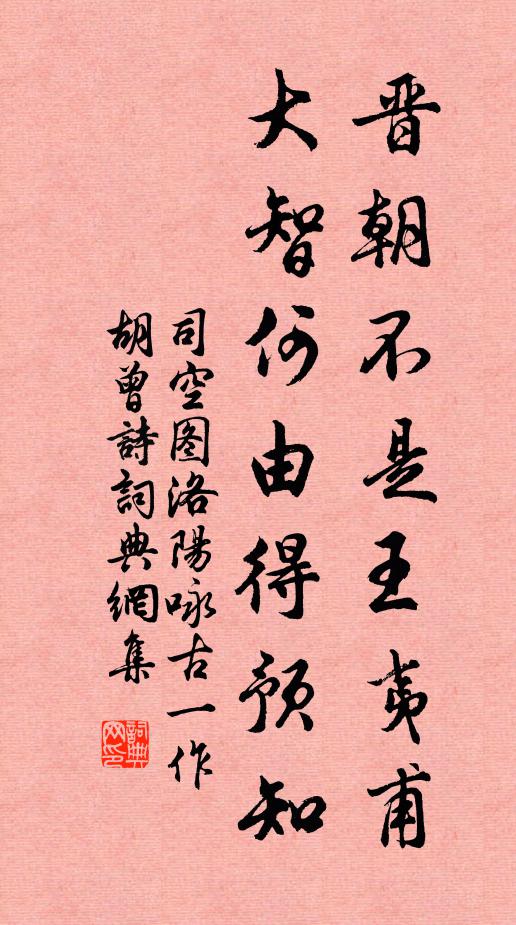 晋朝不是王夷甫
大智何由得预知
司空图洛陽咏古一作
胡曾詩詞典網集
詞典网印